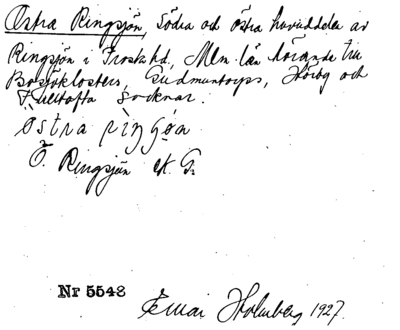 Östra Ringsjön, Södra och östra huvuddelen av
Ringsjön i Frosta hd, Mlm. län hörande till
Bosjöklosters, Gudmuntorps, Hörby och
Fulltofta socknar.
östra ringøn
Ö. Ringsjön ek. G.
Nr 5548
Ernai Holmberg 1927.